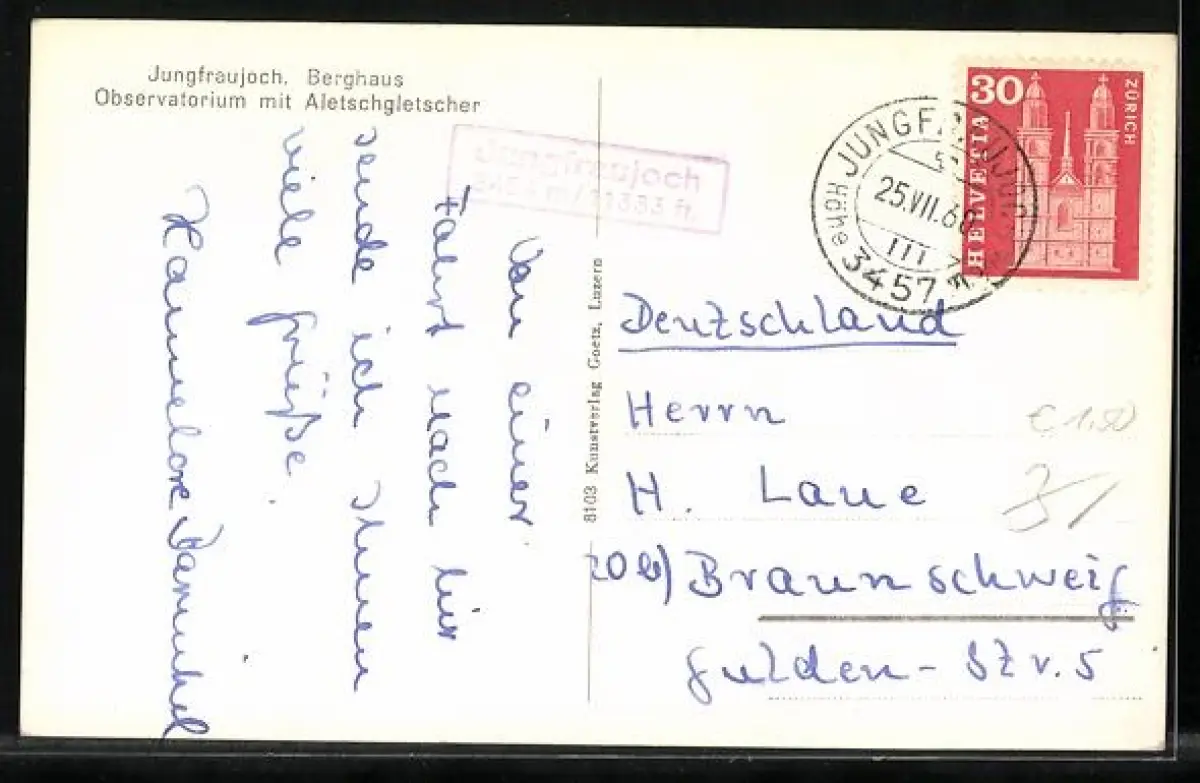 Jungfraujoch. Berghaus
Observatorium mit Aletschgletscher
Jungfraujoch
3454 m / 11333 ft.
Von einer
Fahrt nach hier
sende ich Ihnen
viele Grüße.
Hannelore
8103 Kunstverlag Goetz, Luzern
30
HELVETIA
ZÜRICH
JUNGFRAUJOCH
25.VII.60
III
Höhe 3457
Deutschland
Herrn
H. Laue
(20b) Braunschweig
Gulden-Str. 5
€ 1.50